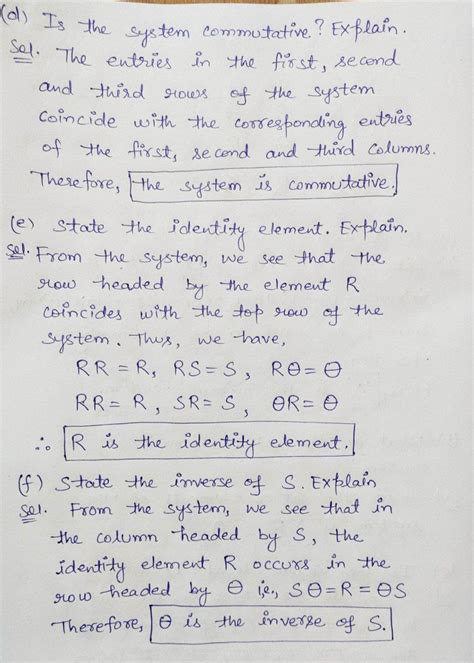 (d) Is the system commutative? Explain.
Sol. The entries in the first, second
and third rows of the system
coincide with the corresponding entries
of the first, second and third columns.
Therefore, the system is commutative.
(e) State the identity element. Explain.
Sol. From the system, we see that the
row headed by the element R
coincides with the top row of the
system. Thus, we have,
RR = R, RS = S, Rθ = θ
RR = R, SR = S, θR = θ
∴ R is the identity element.
(f) State the inverse of S. Explain
Sol. From the system, we see that in
the column headed by S, the
identity element R occurs in the
row headed by θ ie., Sθ = R = θS
Therefore, θ is the inverse of S.